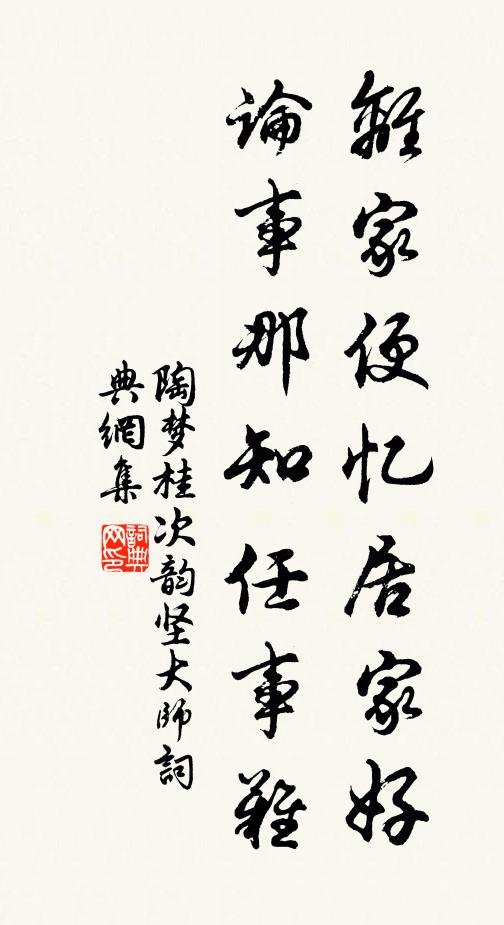 離家便忆居家好
論事那知任事難
陶梦桂次韵坚大师詞
典網集
詞典网印